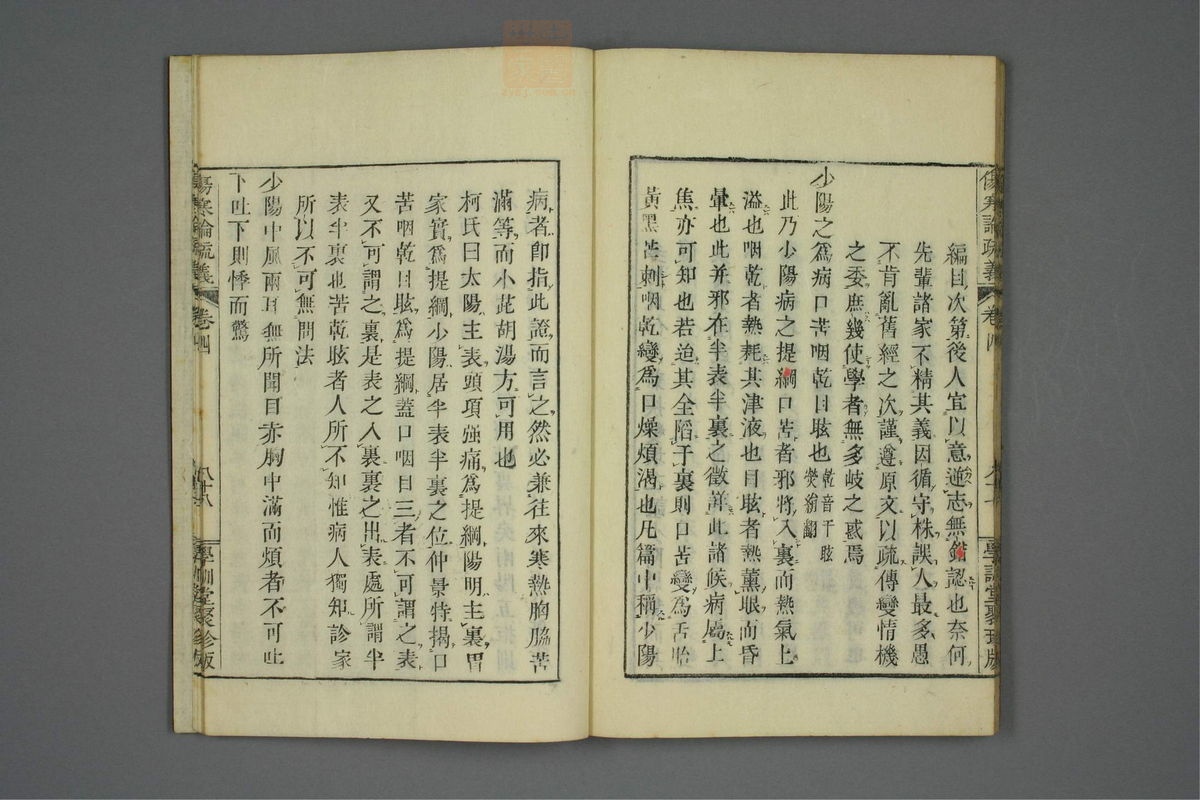 傷寒論疏義 卷四 學訓堂聚珍版
編目次第後人宜以意逆志無錯認也奈何
先輩諸家不精其義因循守株誤人最多愚
不肯亂舊經之次謹遵原文以疏傳變情機
之委庶幾使學者無多岐之惑焉
少陽之爲病口苦咽乾目眩也乾音干眩熒絹翻
此乃少陽病之提綱口苦者邪將入裏而熱氣上
溢也咽乾者熱耗其津液也目眩者熱薰眼而昏
暈也此并邪在半表半裏之徵葢此諸候病屬上
焦亦可知也若迨其全陷于裏則口苦變爲舌胎
黃黑芒刺咽乾變爲口燥煩渴也凡篇中稱少陽
病者卽指此證而言之然必兼往來寒熱胸脇苦
滿等而小茈胡湯方可用也
柯氏曰太陽主表頭項强痛爲提綱陽明主裏胃
家實爲提綱少陽居半表半裏之位仲景特揭口
苦咽乾目眩爲提綱蓋口咽目三者不可謂之表
又不可謂之裏是表之入裏裏之出表處所謂半
表半裏也苦乾眩者人所不知惟病人獨知診家
所以不可無問法
少陽中風兩耳無所聞目赤胸中滿而煩者不可吐
下吐下則悸而驚
傷寒論疏義 卷四 八十八 學訓堂聚珍版